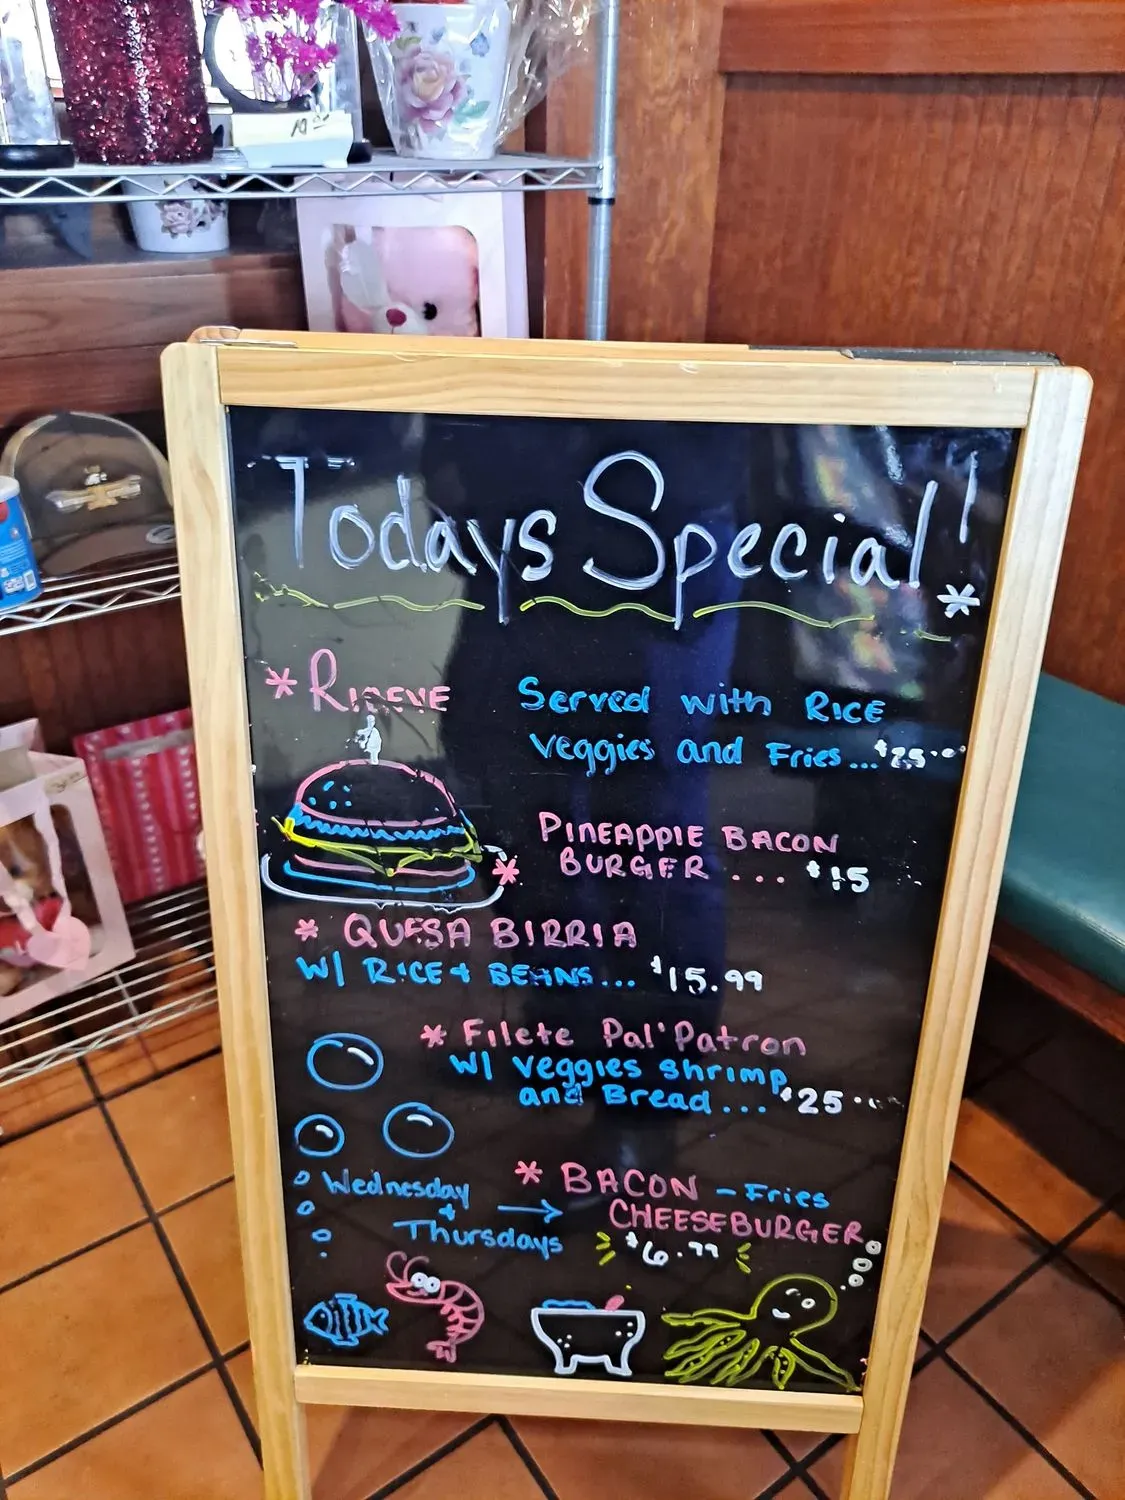 Todays Special!
* RIBEYE
Served with RICE
veggies and Fries... $25.00
* PINEAPPLE BACON
BURGER ... $15
* QUESA BIRRIA
W/ RICE + BEANS... $15.99
* Filete Pal' Patron
W/ veggies shrimp
and Bread... $25.
* BACON - Fries
CHEESEBURGER
$6.99
Wednesday
+
Thursdays